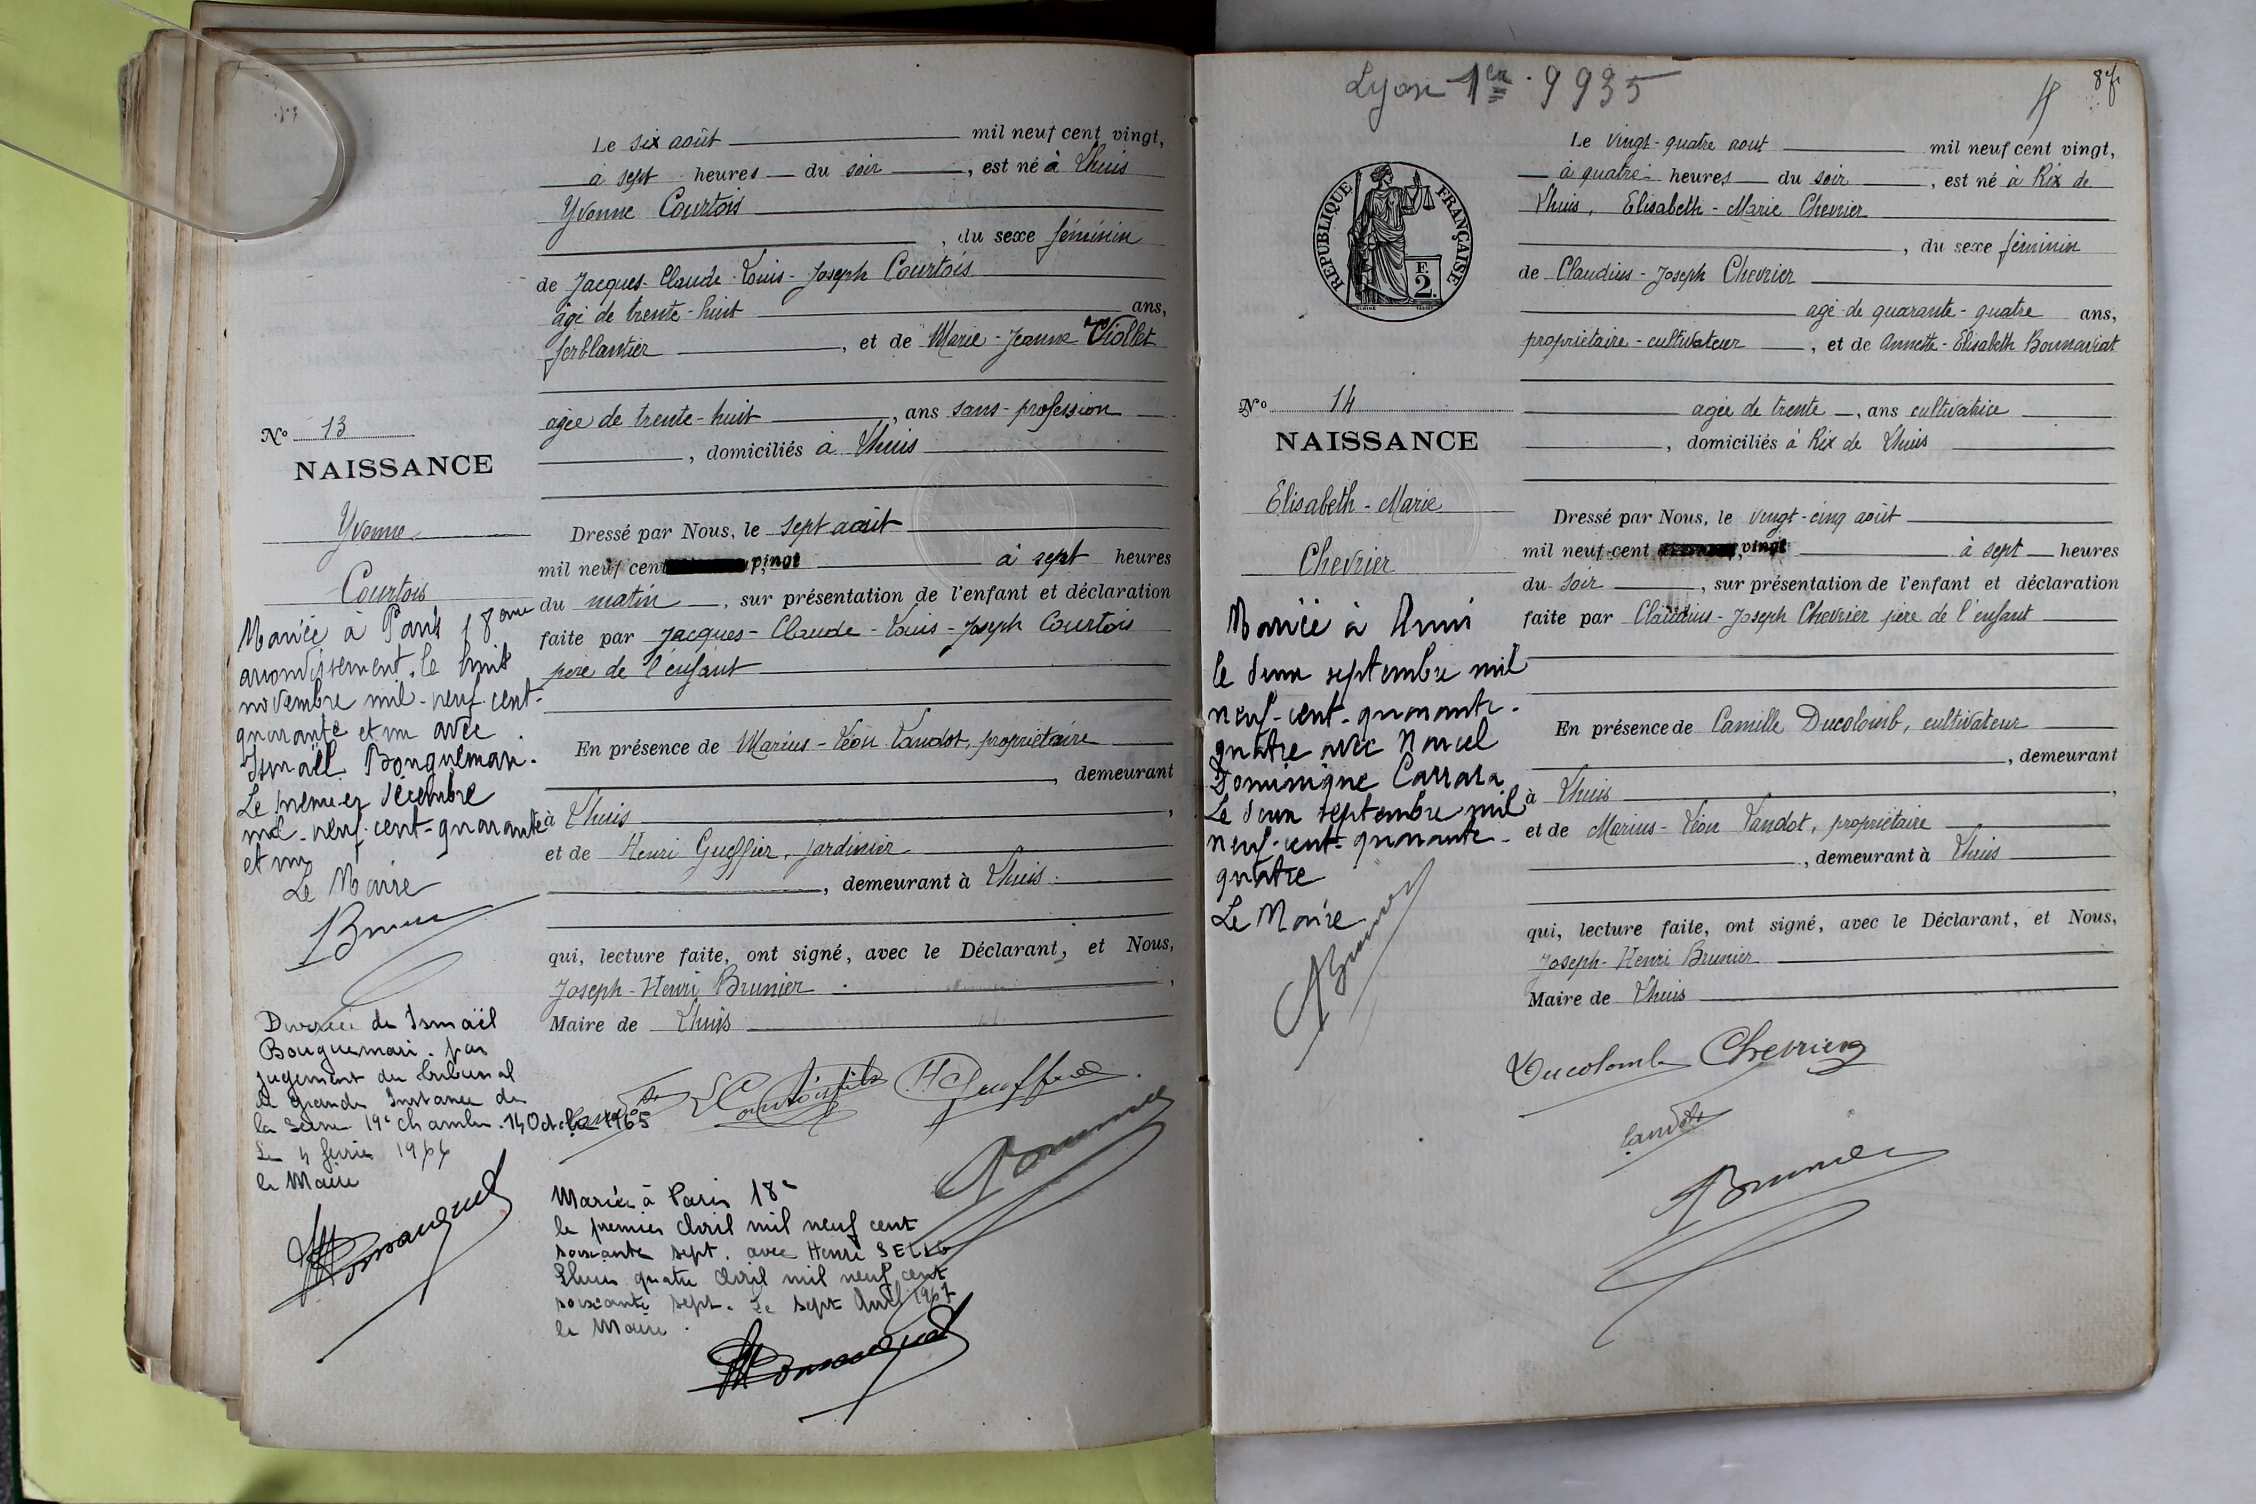 Le six août mil neuf cent vingt,
à sept heures du soir, est né à Lhuis
Yvonne Courtois
, du sexe féminin
de Jacques-Claude-Louis-Joseph Courtois
agé de trente-huit ans,
ferblantier, et de Marie-Jeanne Viollet
agée de trente-huit, ans sans-profession
, domiciliés à Lhuis
Dressé par Nous, le sept août
mil neuf cent vingt à sept heures
du matin, sur présentation de l'enfant et déclaration
faite par Jacques-Claude-Louis-Joseph Courtois
père de l'enfant
En présence de Marius-Léon Landot, propriétaire
, demeurant
à Lhuis,
et de Henri Gueffier, jardinier
, demeurant à Lhuis
qui, lecture faite, ont signé, avec le Déclarant, et Nous,
Joseph-Henri Brunier,
Maire de Lhuis
Landot Courtois fils H Gueffier
Brunier
No 13
NAISSANCE
Yvonne
Courtois
Mariée à Paris 18eme
arrondissement, le huit
novembre mil-neuf-cent-
quarante et un avec
Ismaël Bouguemari.
Le premier décembre
mil-neuf-cent-quarante
et un
Le Maire
Divorcée de Ismaël
Bouguemari. par
jugement du tribunal
de Grande Instance de
la Seine 19e Chambre. 14 Octobre 1965
Le 4 février 1966
le Maire
Mariée à Paris 18e
le premier Avril mil neuf cent
soixante sept. avec Henri
Lhuis quatre Avril mil neuf cent
soixante sept. Le sept Avril 1967
le Maire
Lyon 1er. 9935
8 f
Le vingt-quatre aout mil neuf cent vingt,
à quatre heures du soir, est né à Rix de
Lhuis, Elisabeth-Marie Chevrier
, du sexe féminin
de Claudius-Joseph Chevrier
agé de quarante-quatre ans,
propriétaire-cultivateur, et de Annette-Elisabeth Bonnaviat
agée de trente, ans cultivatrice
, domiciliés à Rix de Lhuis
Dressé par Nous, le vingt-cinq août
mil neuf-cent vingt à sept heures
du soir, sur présentation de l'enfant et déclaration
faite par Claudius-Joseph Chevrier père de l'enfant
En présence de Camille Ducolomb, cultivateur
, demeurant
à Lhuis,
et de Marius-Léon Landot, propriétaire
, demeurant à Lhuis
qui, lecture faite, ont signé, avec le Déclarant, et Nous,
Joseph-Henri Brunier
Maire de Lhuis
Ducolomb Chevrier
Landot
Brunier
RÉPUBLIQUE FRANÇAISE
F.
2.
No 14
NAISSANCE
Elisabeth-Marie
Chevrier
Mariée à Lhuis
le deux septembre mil
neuf-cent-quarante-
quatre avec Marcel
Dominique Carrara
Le deux septembre mil
neuf-cent-quarante-
quatre
Le Maire
Brunier